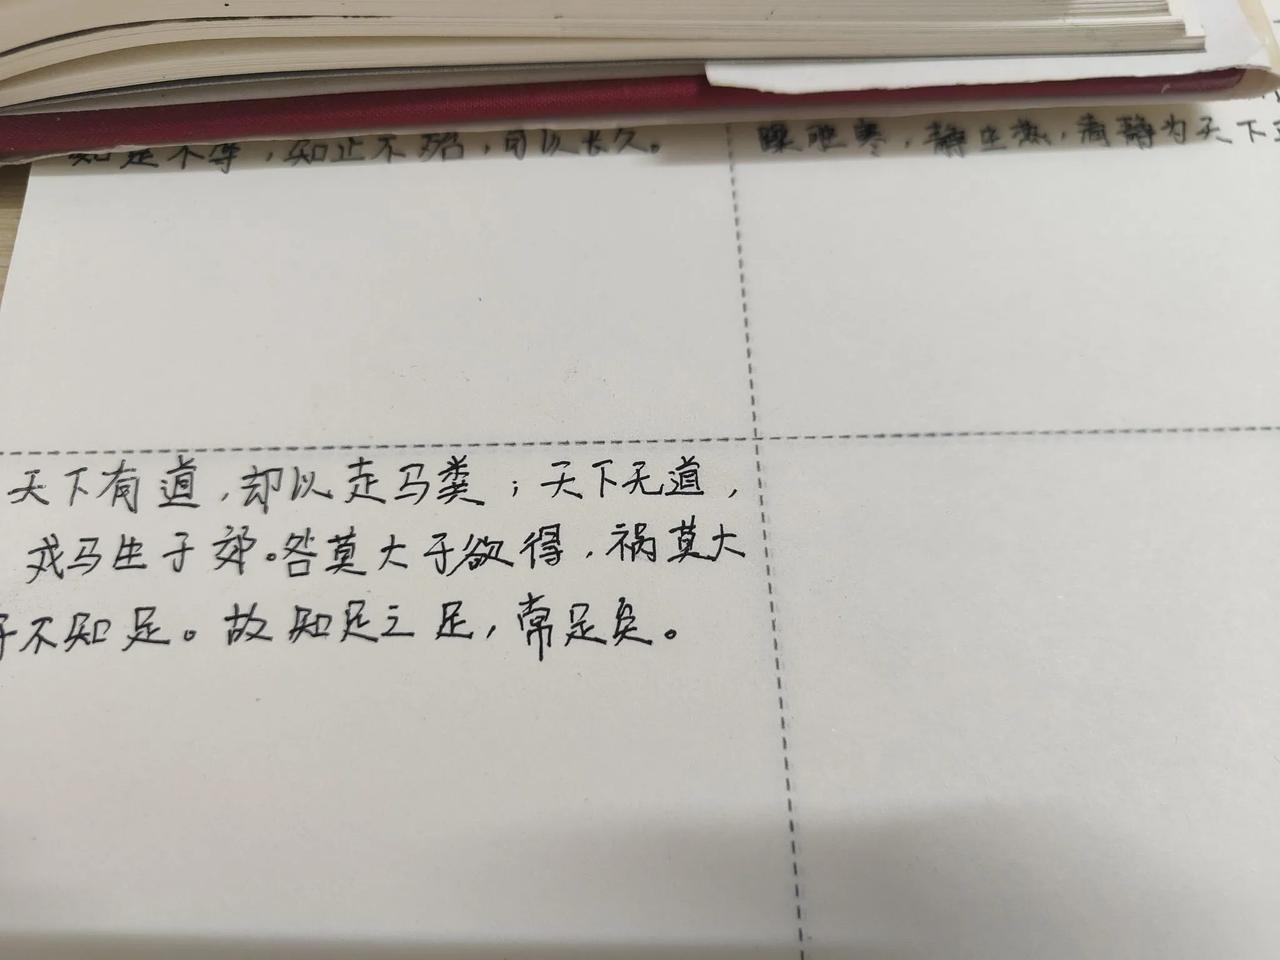 知足不辱，知止不殆，可以长久。
躁胜寒，静生热，清静为天下
天下有道，却以走马粪；天下无道，
戎马生于郊。咎莫大于欲得，祸莫大
于不知足。故知足之足，常足矣。